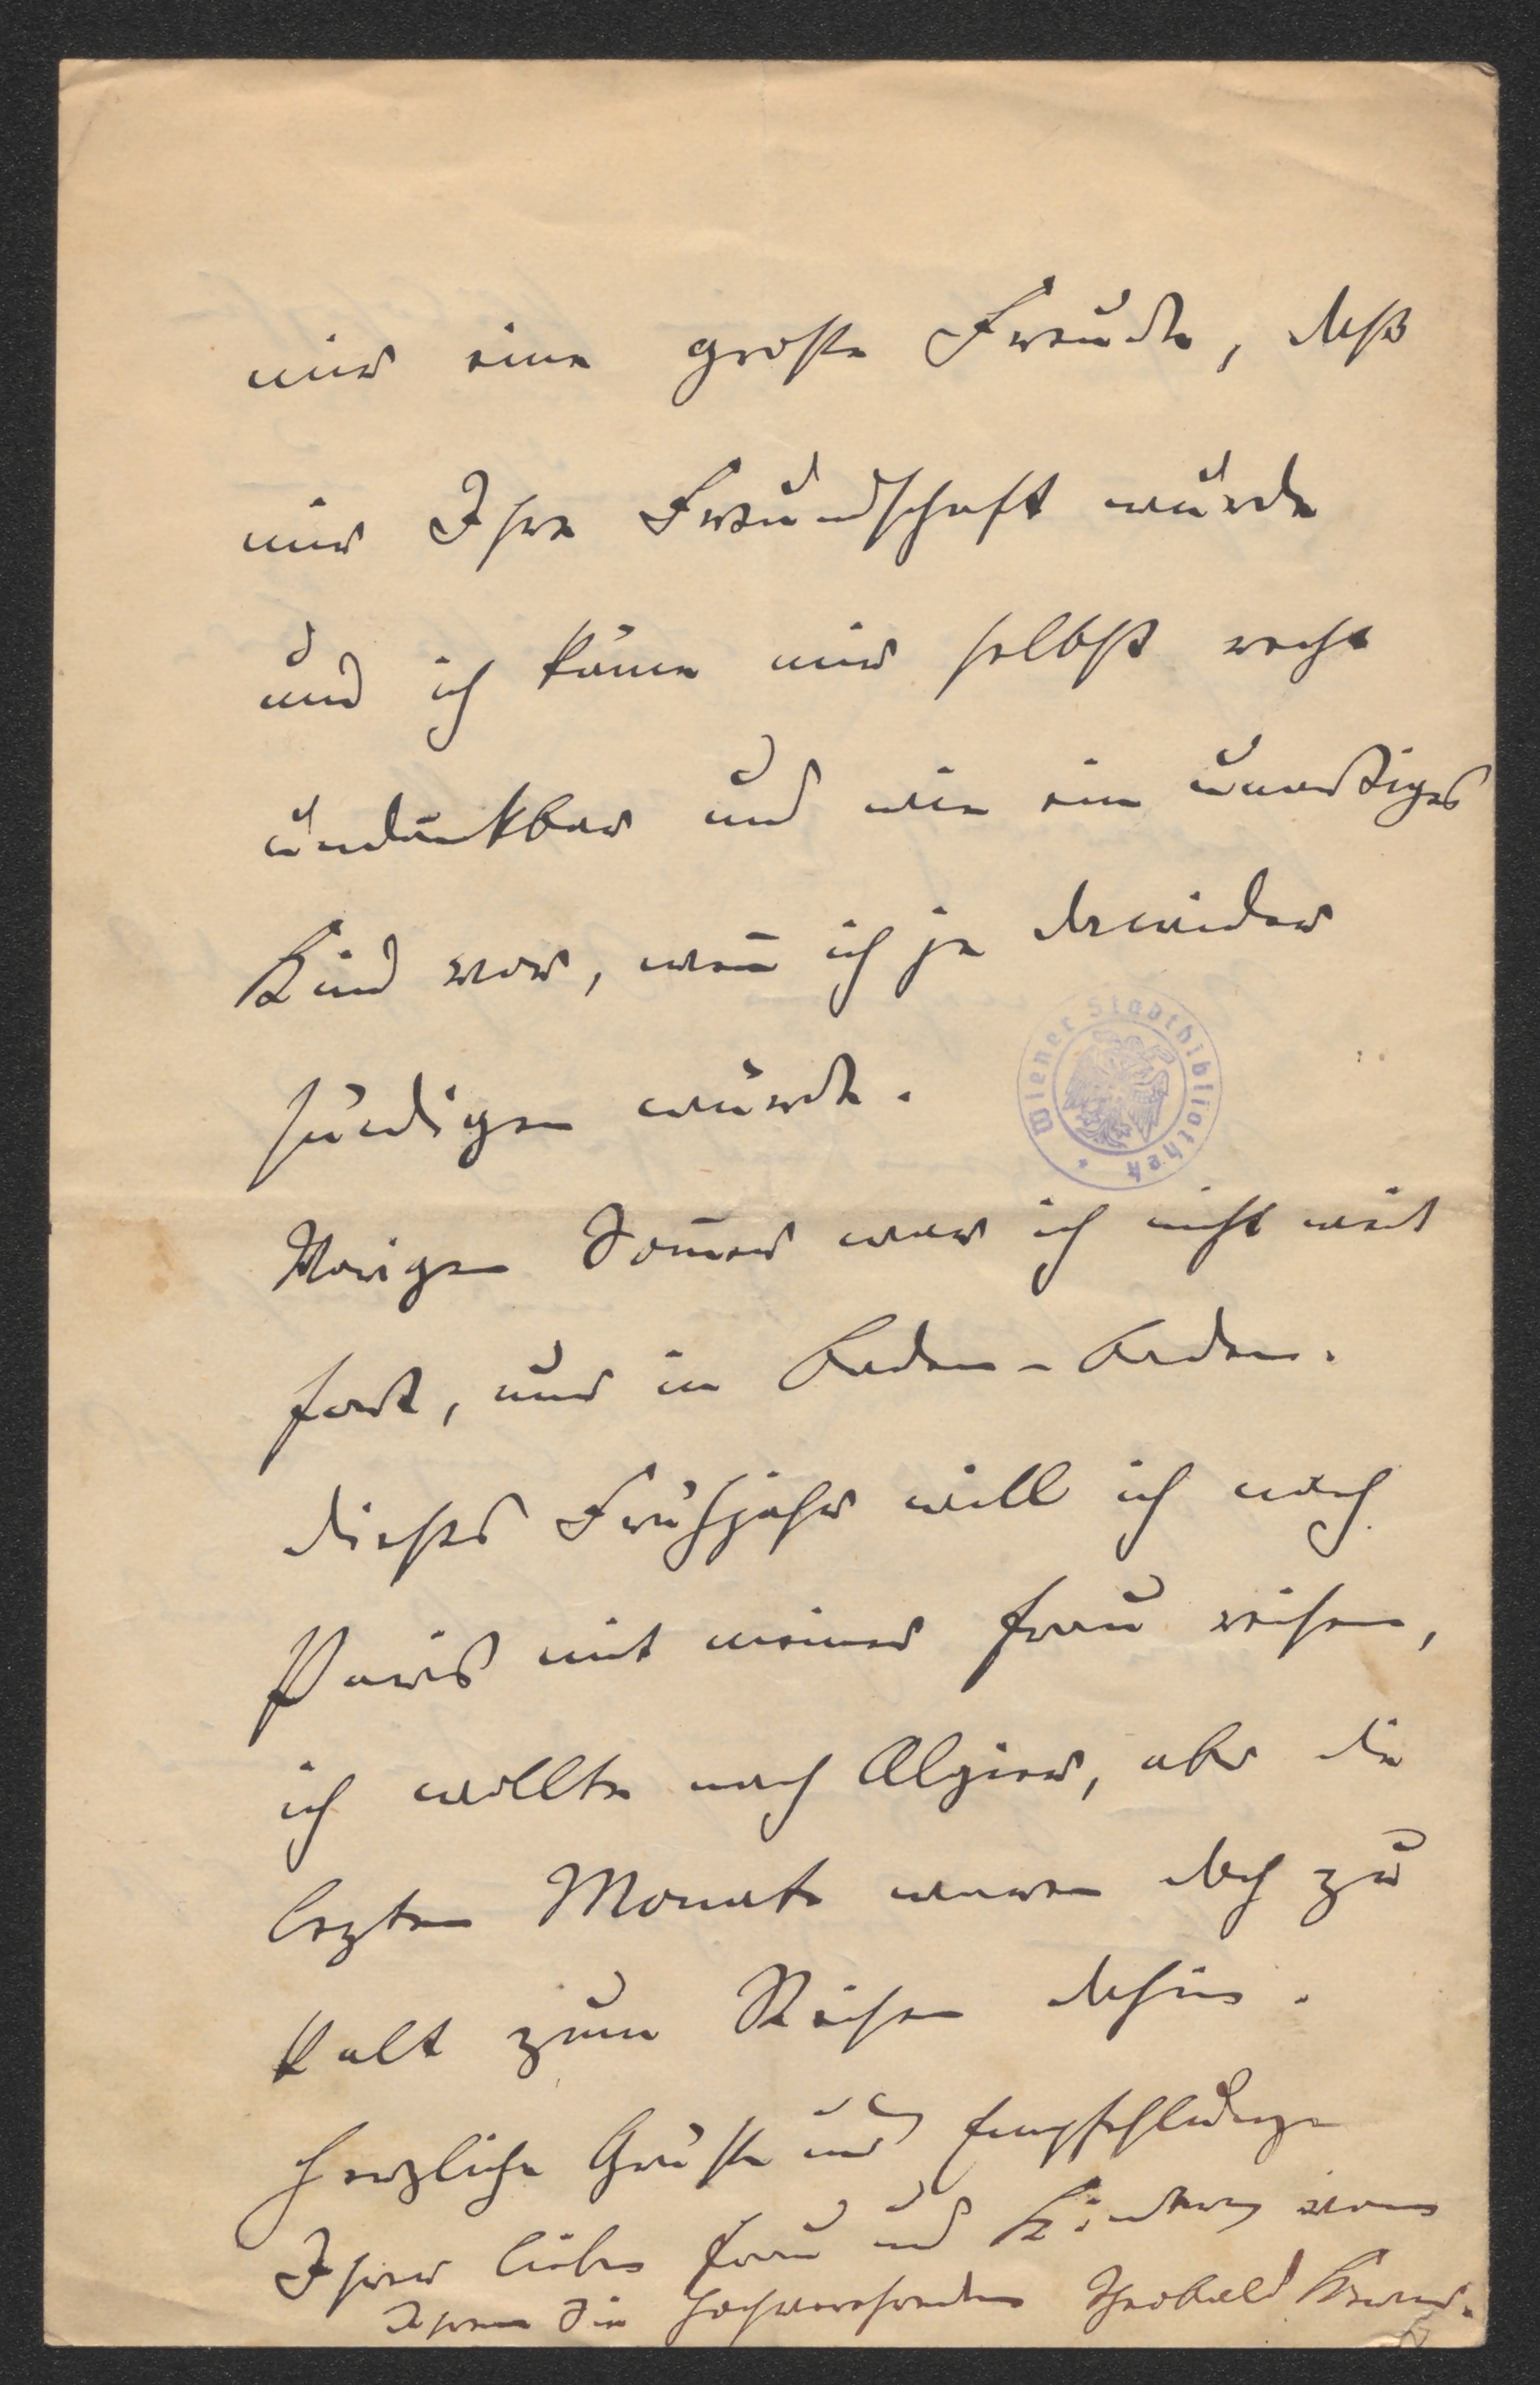 mir eine große Freude, daß
mir Ihre Freundschaft wurde
und ich käme mir selbst recht
undankbar und wie ein unartiges
Kind vor, weñ ich je darwider
sündigen würde.
Wiener Stadtbibliothek
Vorigen Som̃er war ich nicht weit
fort, nur in Baden-Baden.
dießes Frühjahr will ich nach
Paris mit meiner Frau reisen,
ich wollte nach Algier, aber die
lezten Monate waren doch zu
kalt zum Reisen dahin.
Herzliche Grüße und Empfehlungen
Ihrer lieben Frau und Kindern von
Ihrem Sie hochverehrenden Theobald Kerner.